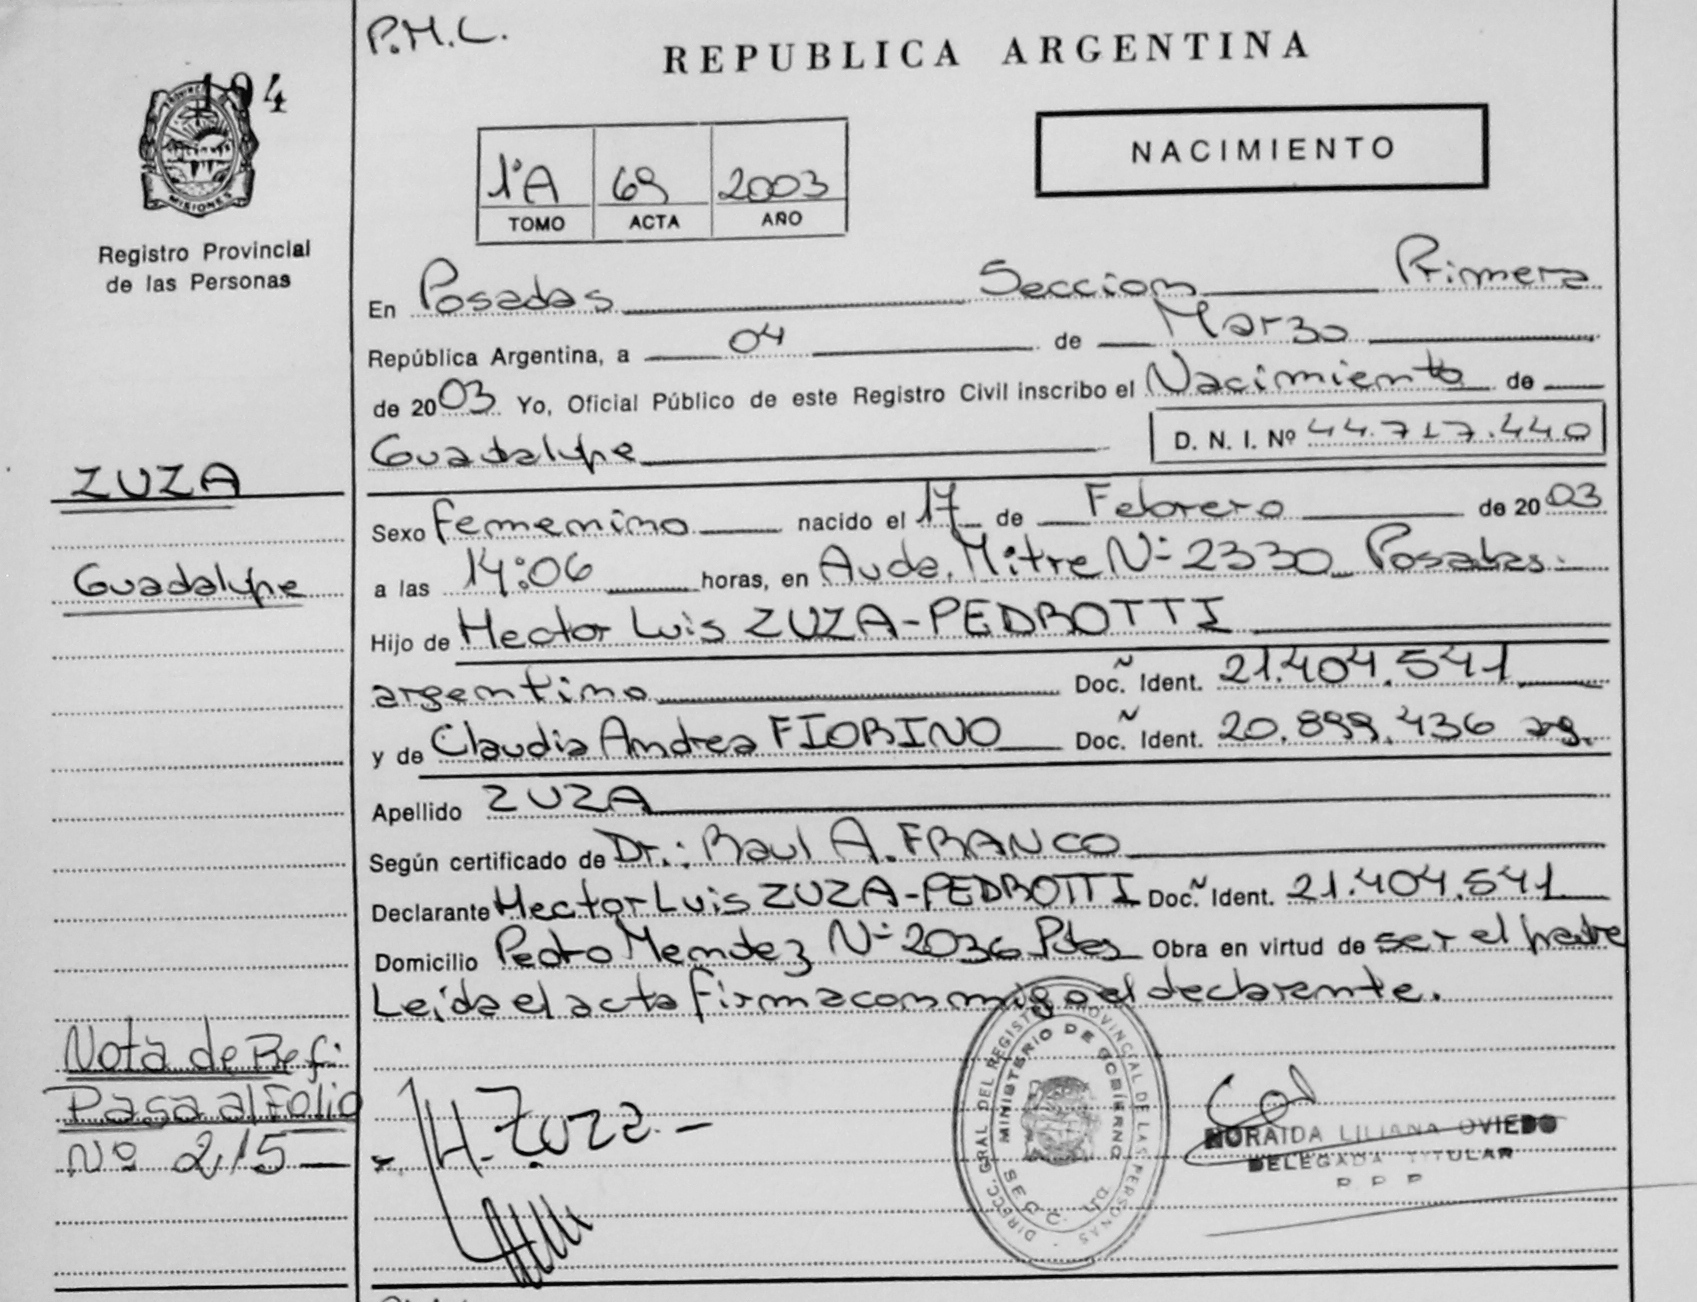 P.M.L.
REPUBLICA ARGENTINA
194
NACIMIENTO
1ºA 69 2003
TOMO ACTA AÑO
MISIONES
Registro Provincial
de las Personas
En Posadas Seccion Primera
República Argentina, a 04 de Marzo
de 2003 Yo, Oficial Público de este Registro Civil inscribo el Nacimiento de
Guadalupe D. N. I. Nº 44.717.440
ZUZA
Guadalupe
Sexo femenino nacido el 17 de Febrero de 2003
a las 14:06 horas, en Avda. Mitre Nº 2330 Posadas.
Hijo de Hector Luis ZUZA-PEDROTTI
argentino Doc. Ident. 21.404.541
y de Claudia Andrea FIORINO Doc. Ident. 20.899.436 arg.
Apellido ZUZA
Según certificado de Dr.: Raul A. FRANCO
Declarante Hector Luis ZUZA-PEDROTTI Doc. Ident. 21.404.541
Domicilio Pedro Mendez Nº 2036 Pdas Obra en virtud de ser el padre
Leída el acta firma conmigo el declarante.
Nota de Ref:
Pasa al Folio
Nº 215
H. Zuza
DIRECC. GRAL DEL REGISTRO PROVINCIAL DE LAS PERSONAS
MINISTERIO DE GOBIERNO
SECC. 1ra.
NORAIDA LILIANA OVIEDO
DELEGADA TITULAR
R P P